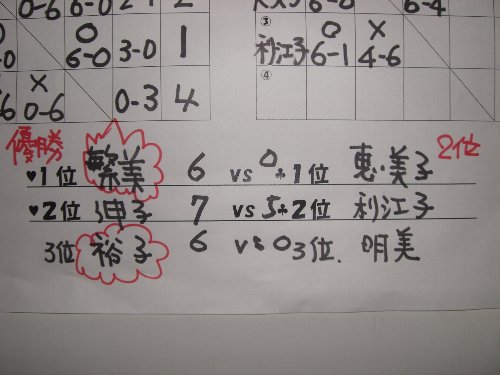 0-6 6-0 0-1 2
6-0
○
6-0 3-0 1
×
0-6 0-3 4
6-0 6-4
③ 利江子 ○ 6-1 × 4-6
④
優勝 2位
♥1位 繁美 6 vs 0 ♣1位 恵美子
♥2位 伸子 7 vs 5 ♣2位 利江子
3位 裕子 6 vs 0 3位. 明美